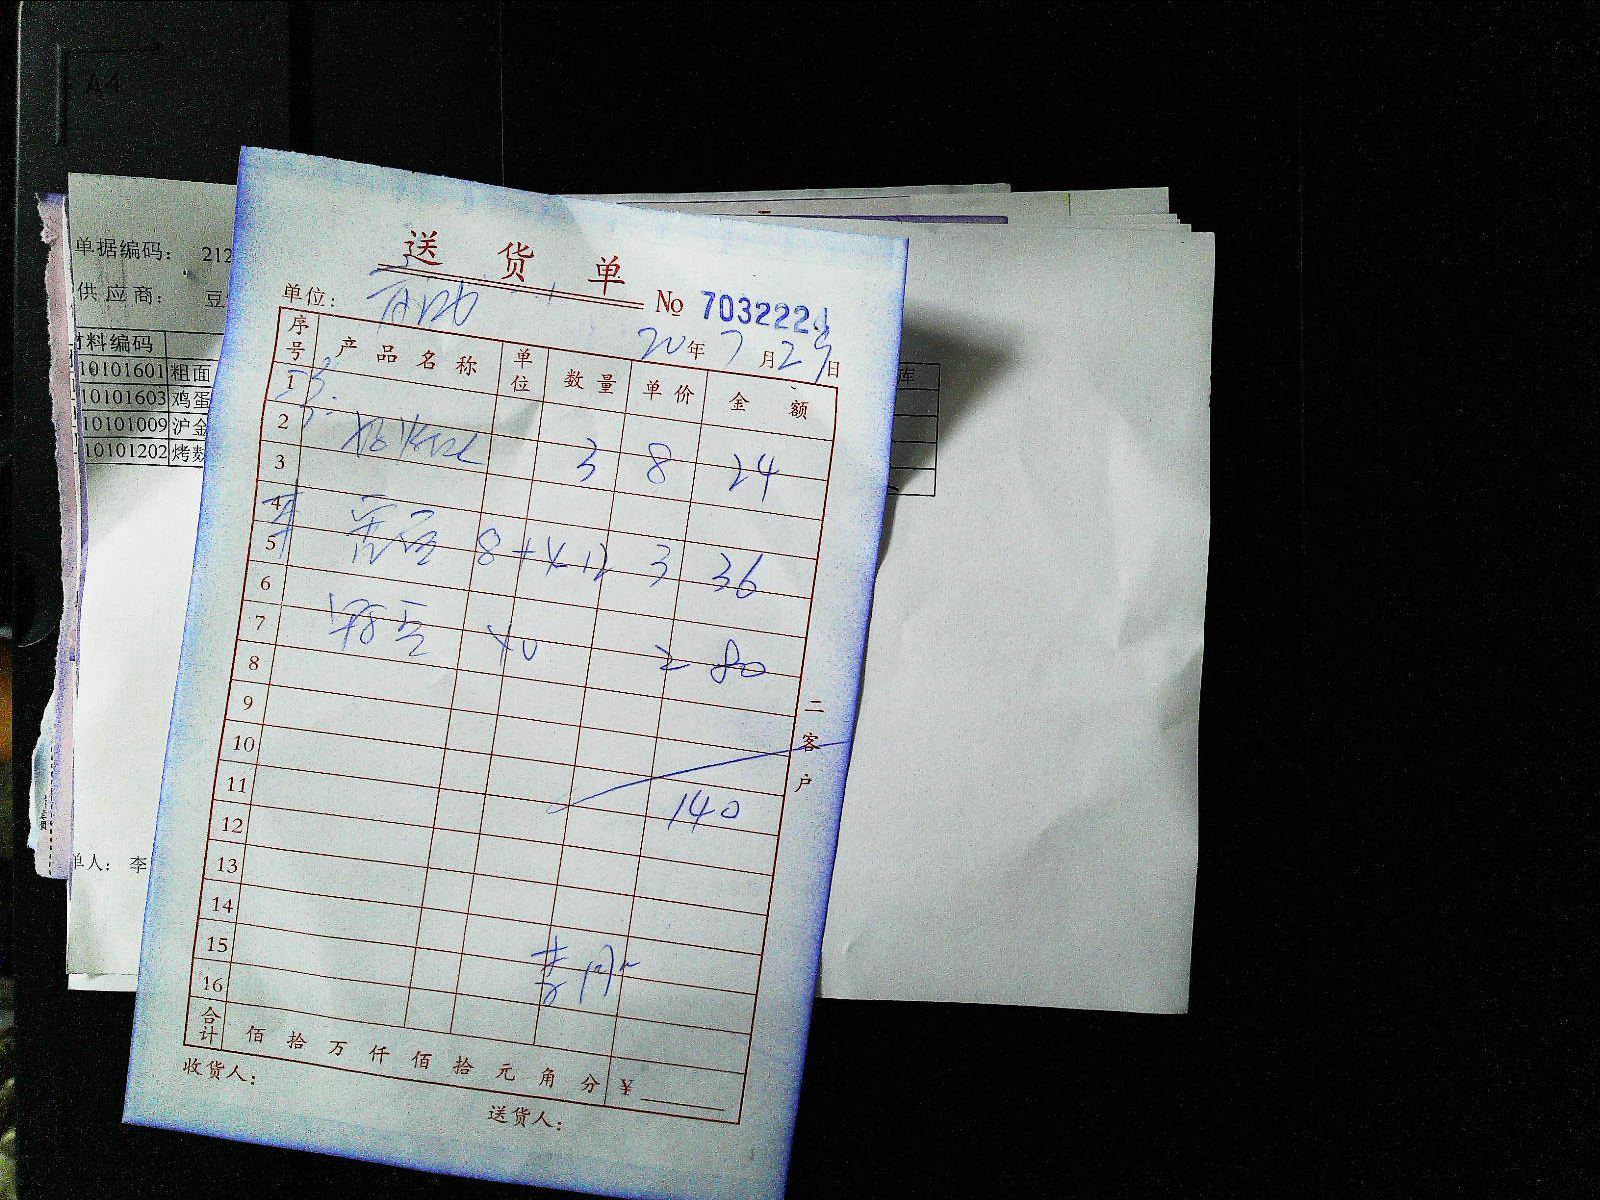 A4
单据编码： 212
供应商： 豆
料编码
10101601 粗面
10101603 鸡蛋
10101009 沪金
10101202 烤麸
库
单人： 李
送货单
单位：
No 703222
20年7月29日
序号 产品名称 单位 数量 单价 金额
1
2
3 8 24
3
4
5
8+4 12 3 36
6
7
40 2 80
8
9
10
11
140
12
13
14
15
16
合计 佰 拾 万 仟 佰 拾 元 角 分 ¥
收货人：
送货人：
二客户